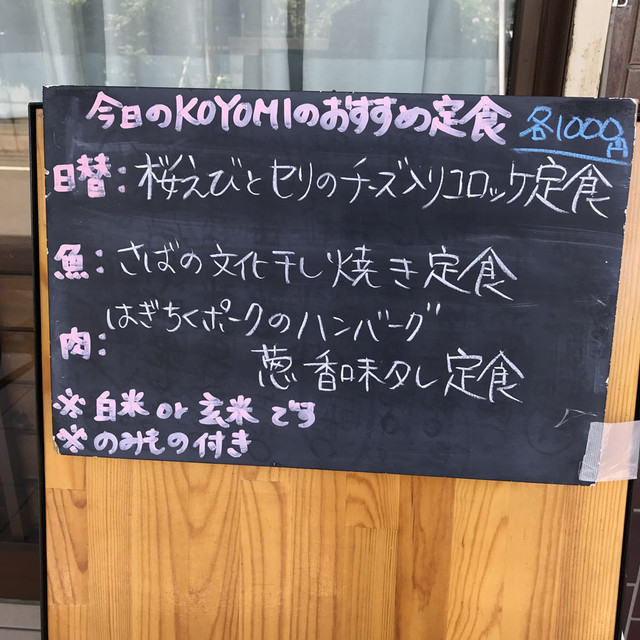 今日のKOYOMIのおすすめ定食 各1000円
日替:桜えびとセリのチーズ入りコロッケ定食
魚:さばの文化干し焼き定食
肉:はぎちくポークのハンバーグ
葱香味タレ定食
※白米or玄米です
※のみもの付き